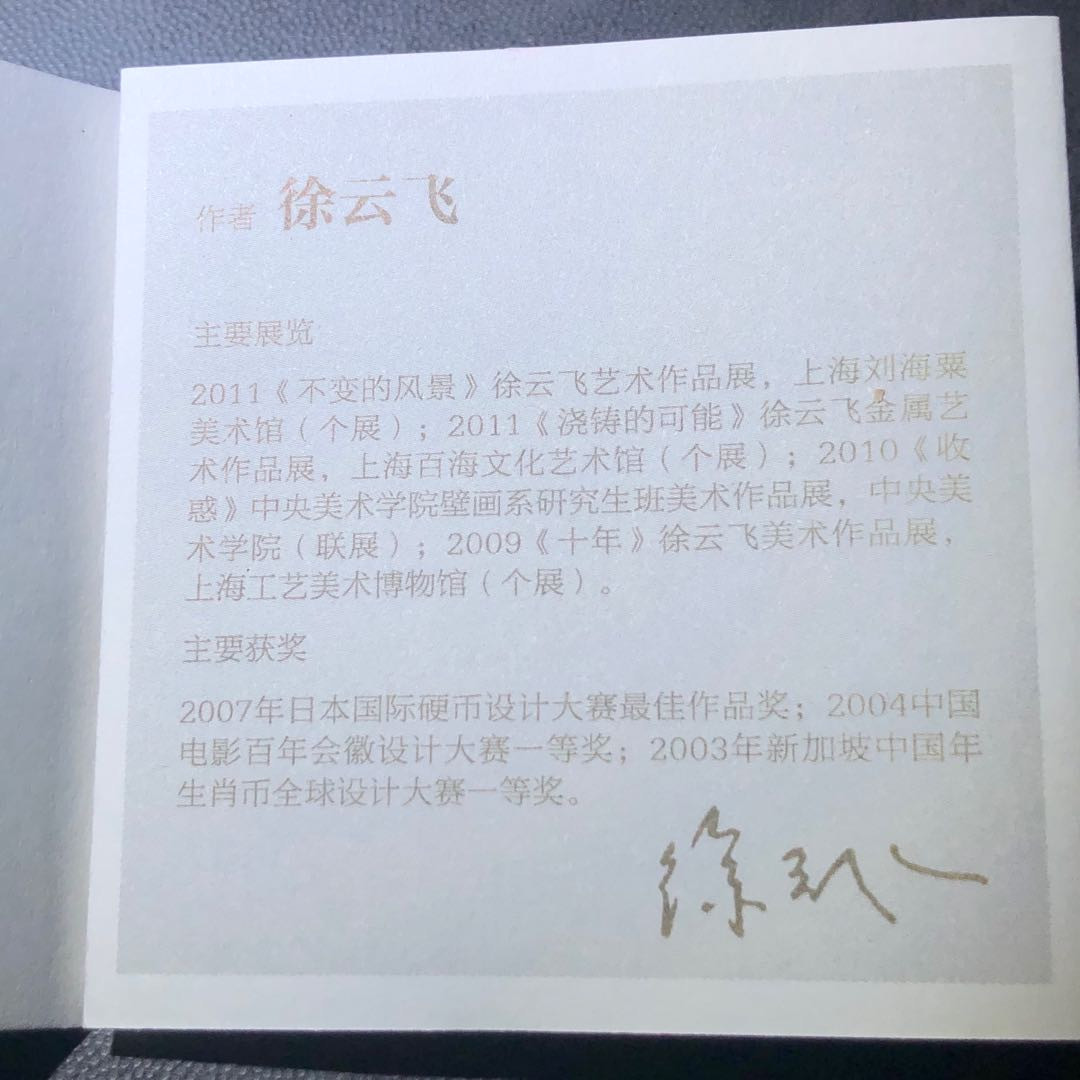 作者 徐云飞
主要展览
2011《不变的风景》徐云飞艺术作品展，上海刘海粟
美术馆（个展）；2011《浇铸的可能》徐云飞金属艺
术作品展，上海百海文化艺术馆（个展）；2010《收
惑》中央美术学院壁画系研究生班美术作品展，中央美
术学院（联展）；2009《十年》徐云飞美术作品展，
上海工艺美术博物馆（个展）。
主要获奖
2007年日本国际硬币设计大赛最佳作品奖；2004中国
电影百年会徽设计大赛一等奖；2003年新加坡中国年
生肖币全球设计大赛一等奖。
徐云飞